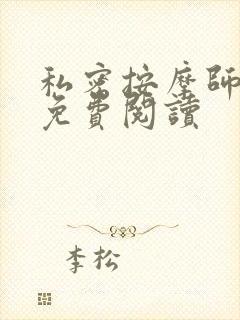 私密按摩師
免費閱讀
李松